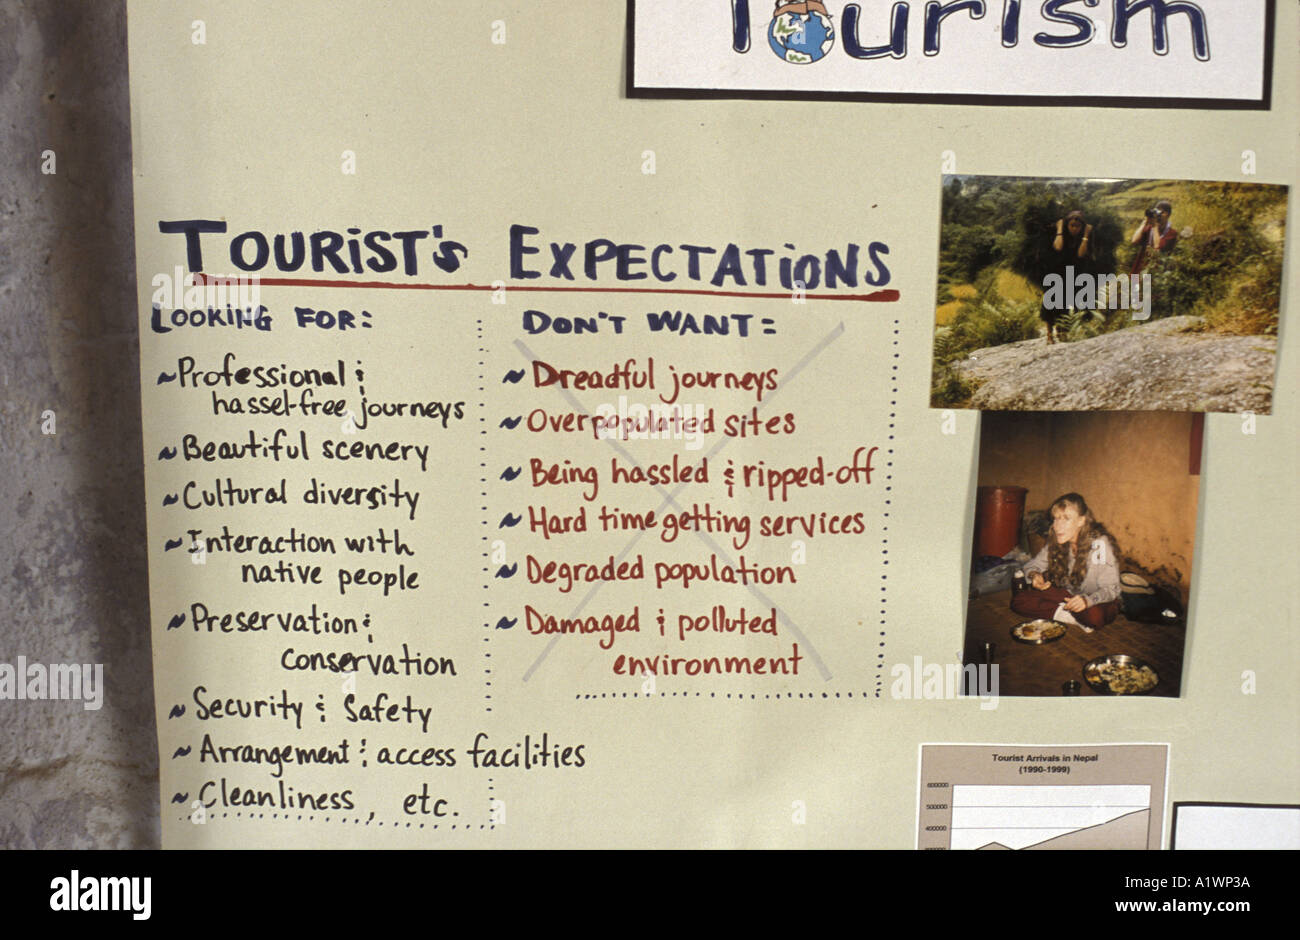 Tourism
TOURIST's EXPECTATIONS
LOOKING FOR:
~Professional &
hassel-free journeys
~Beautiful scenery
~Cultural diversity
~Interaction with
native people
~Preservation &
conservation
~Security & Safety
~Arrangement & access facilities
~Cleanliness, etc.
DON'T WANT:
~Dreadful journeys
~Overpopulated sites
~Being hassled & ripped-off
~Hard time getting services
~Degraded population
~Damaged & polluted
environment
Tourist Arrivals in Nepal
(1990-1999)
600000
500000
400000
a
alamy
alamy stock photo
Image ID: A1WP3A
www.alamy.com